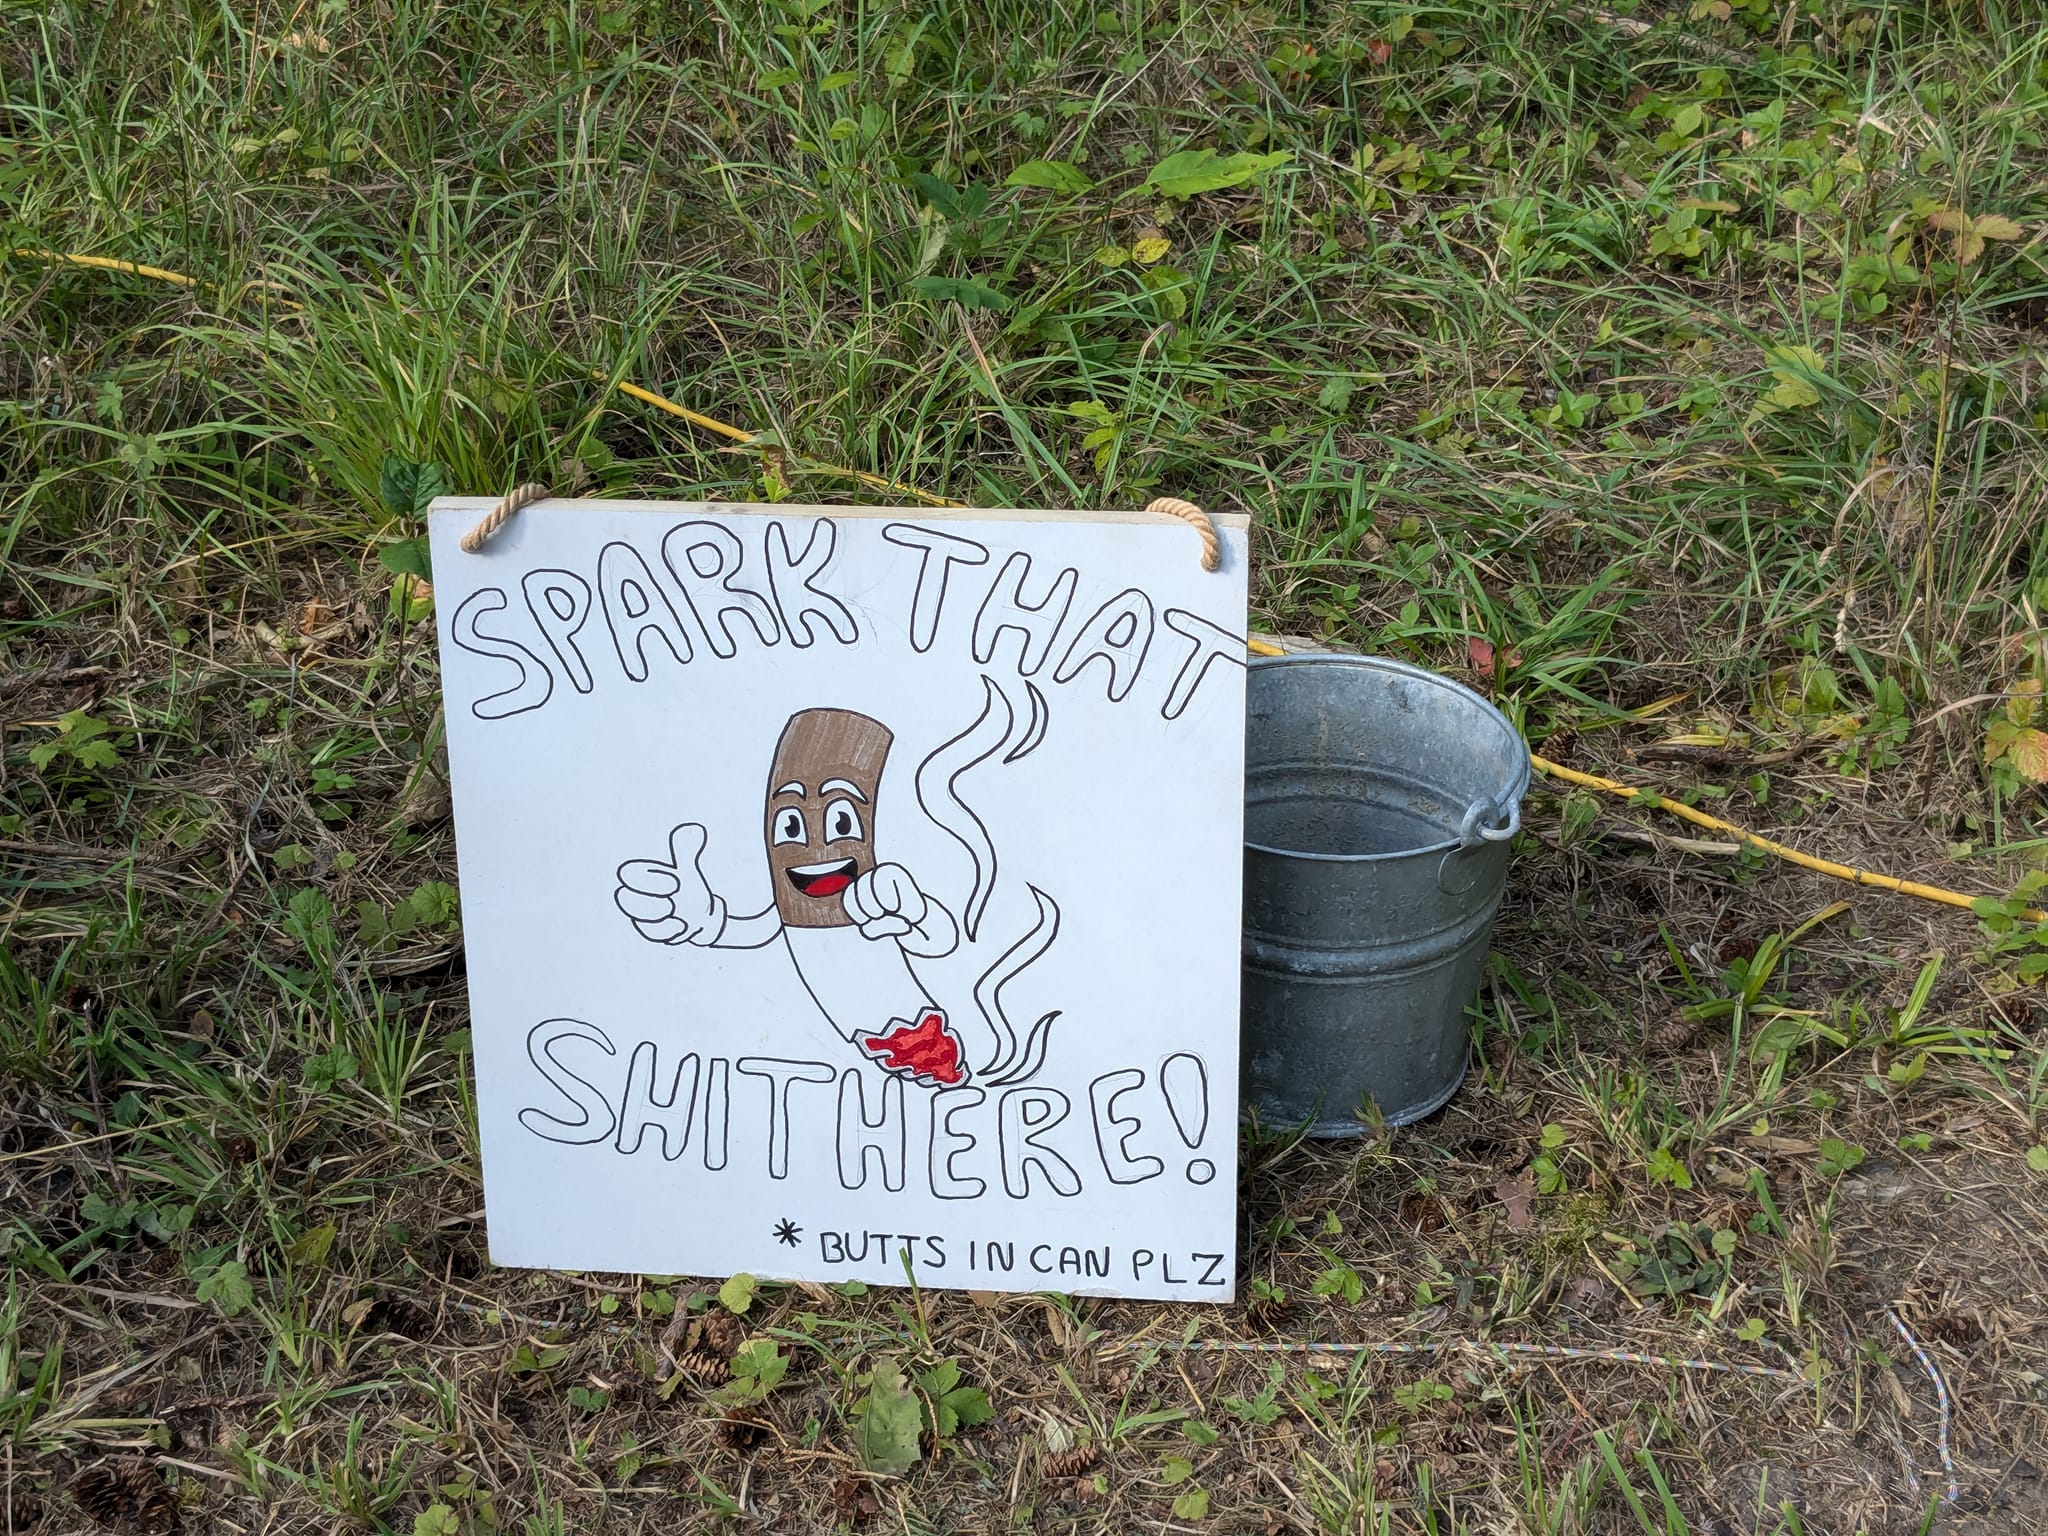 SPARK THAT
SHIT HERE!
* BUTTS IN CAN PLZ